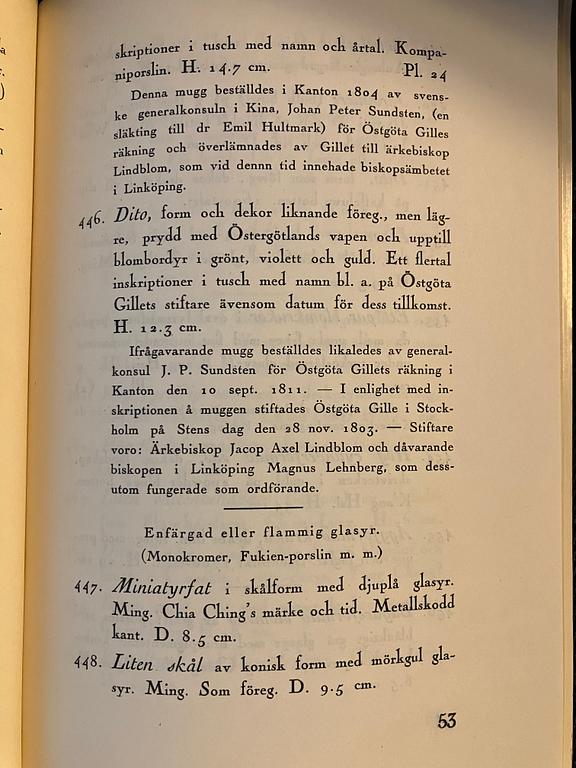 skriptioner i tusch med namn och årtal. Kompa-
niporslin. H. 14.7 cm. Pl. 24
Denna mugg beställdes i Kanton 1804 av svens-
ke generalkonsuln i Kina, Johan Peter Sundsten, (en
släkting till dr Emil Hultmark) för Östgöta Gilles
räkning och överlämnades av Gillet till ärkebiskop
Lindblom, som vid dennn tid innehade biskopsämbetet
i Linköping.
446. Dito, form och dekor liknande föreg., men läg-
re, prydd med Östergötlands vapen och upptill
blombordyr i grönt, violett och guld. Ett flertal
inskriptioner i tusch med namn bl. a. på Östgöta
Gillets stiftare ävensom datum för dess tillkomst.
H. 12.3 cm.
Ifrågavarande mugg beställdes likaledes av general-
konsul J. P. Sundsten för Östgöta Gillets räkning i
Kanton den 10 sept. 1811. — I enlighet med in-
skriptionen å muggen stiftades Östgöta Gille i Stock-
holm på Stens dag den 28 nov. 1803. — Stiftare
voro: Ärkebiskop Jacop Axel Lindblom och dåvarande
biskopen i Linköping Magnus Lehnberg, som dess-
utom fungerade som ordförande.
Enfärgad eller flammig glasyr.
(Monokromer, Fukien-porslin m. m.)
447. Miniatyrfat i skålform med djuplå glasyr.
Ming. Chia Ching's märke och tid. Metallskodd
kant. D. 8.5 cm.
448. Liten skål av konisk form med mörkgul gla-
syr. Ming. Som föreg. D. 9.5 cm.
53